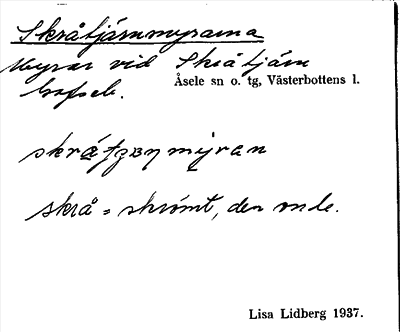 Skråtjärnmyrarna
Myrar vid Skråtjärn
Åsele sn o. tg, Västerbottens l.
Gafsele.
myran
skrå = skrömt, den onde.
Lisa Lidberg 1937.